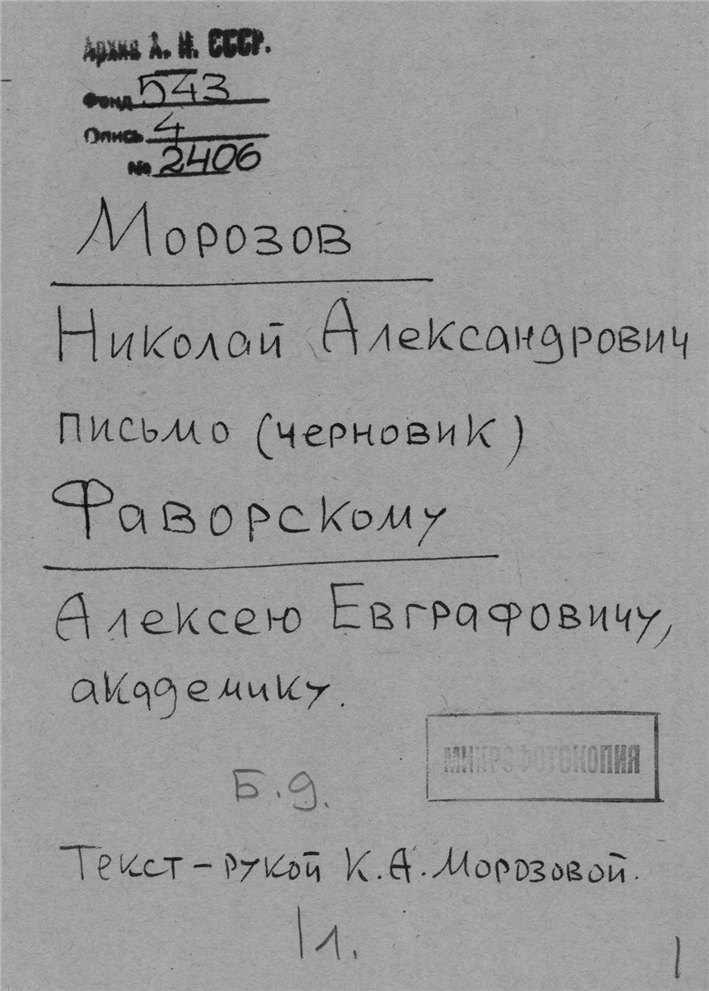 Архив А. Н. СССР.
Фонд 543
Опись 4
№ 2406
Морозов
Николай Александрович
письмо (черновик)
Фаворскому
Алексею Евграфовичу,
академику.
МИКРОФОТОКОПИЯ
Б.д.
Текст – рукой К.А. Морозовой.
1 л.
1